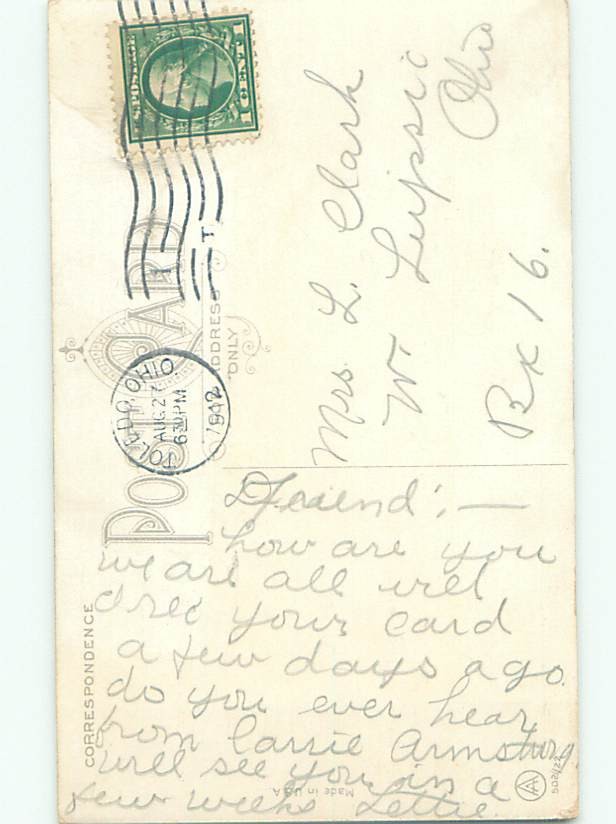 U.S. POSTAGE
1 CENT 1
POST CARD
ADDRESS
ONLY
TOLEDO, OHIO.
AUG 27
630 PM
1912
Mrs L. Clark
W Leipsic
Ohio
Bx 16.
CORRESPONDENCE
Friend: —
how are you
we are all well
I rec your card
a few days ago.
do you ever hear
from Carrie Armstrong
will see you in a
few weeks Lettie.
Made in U.S.A
502/22